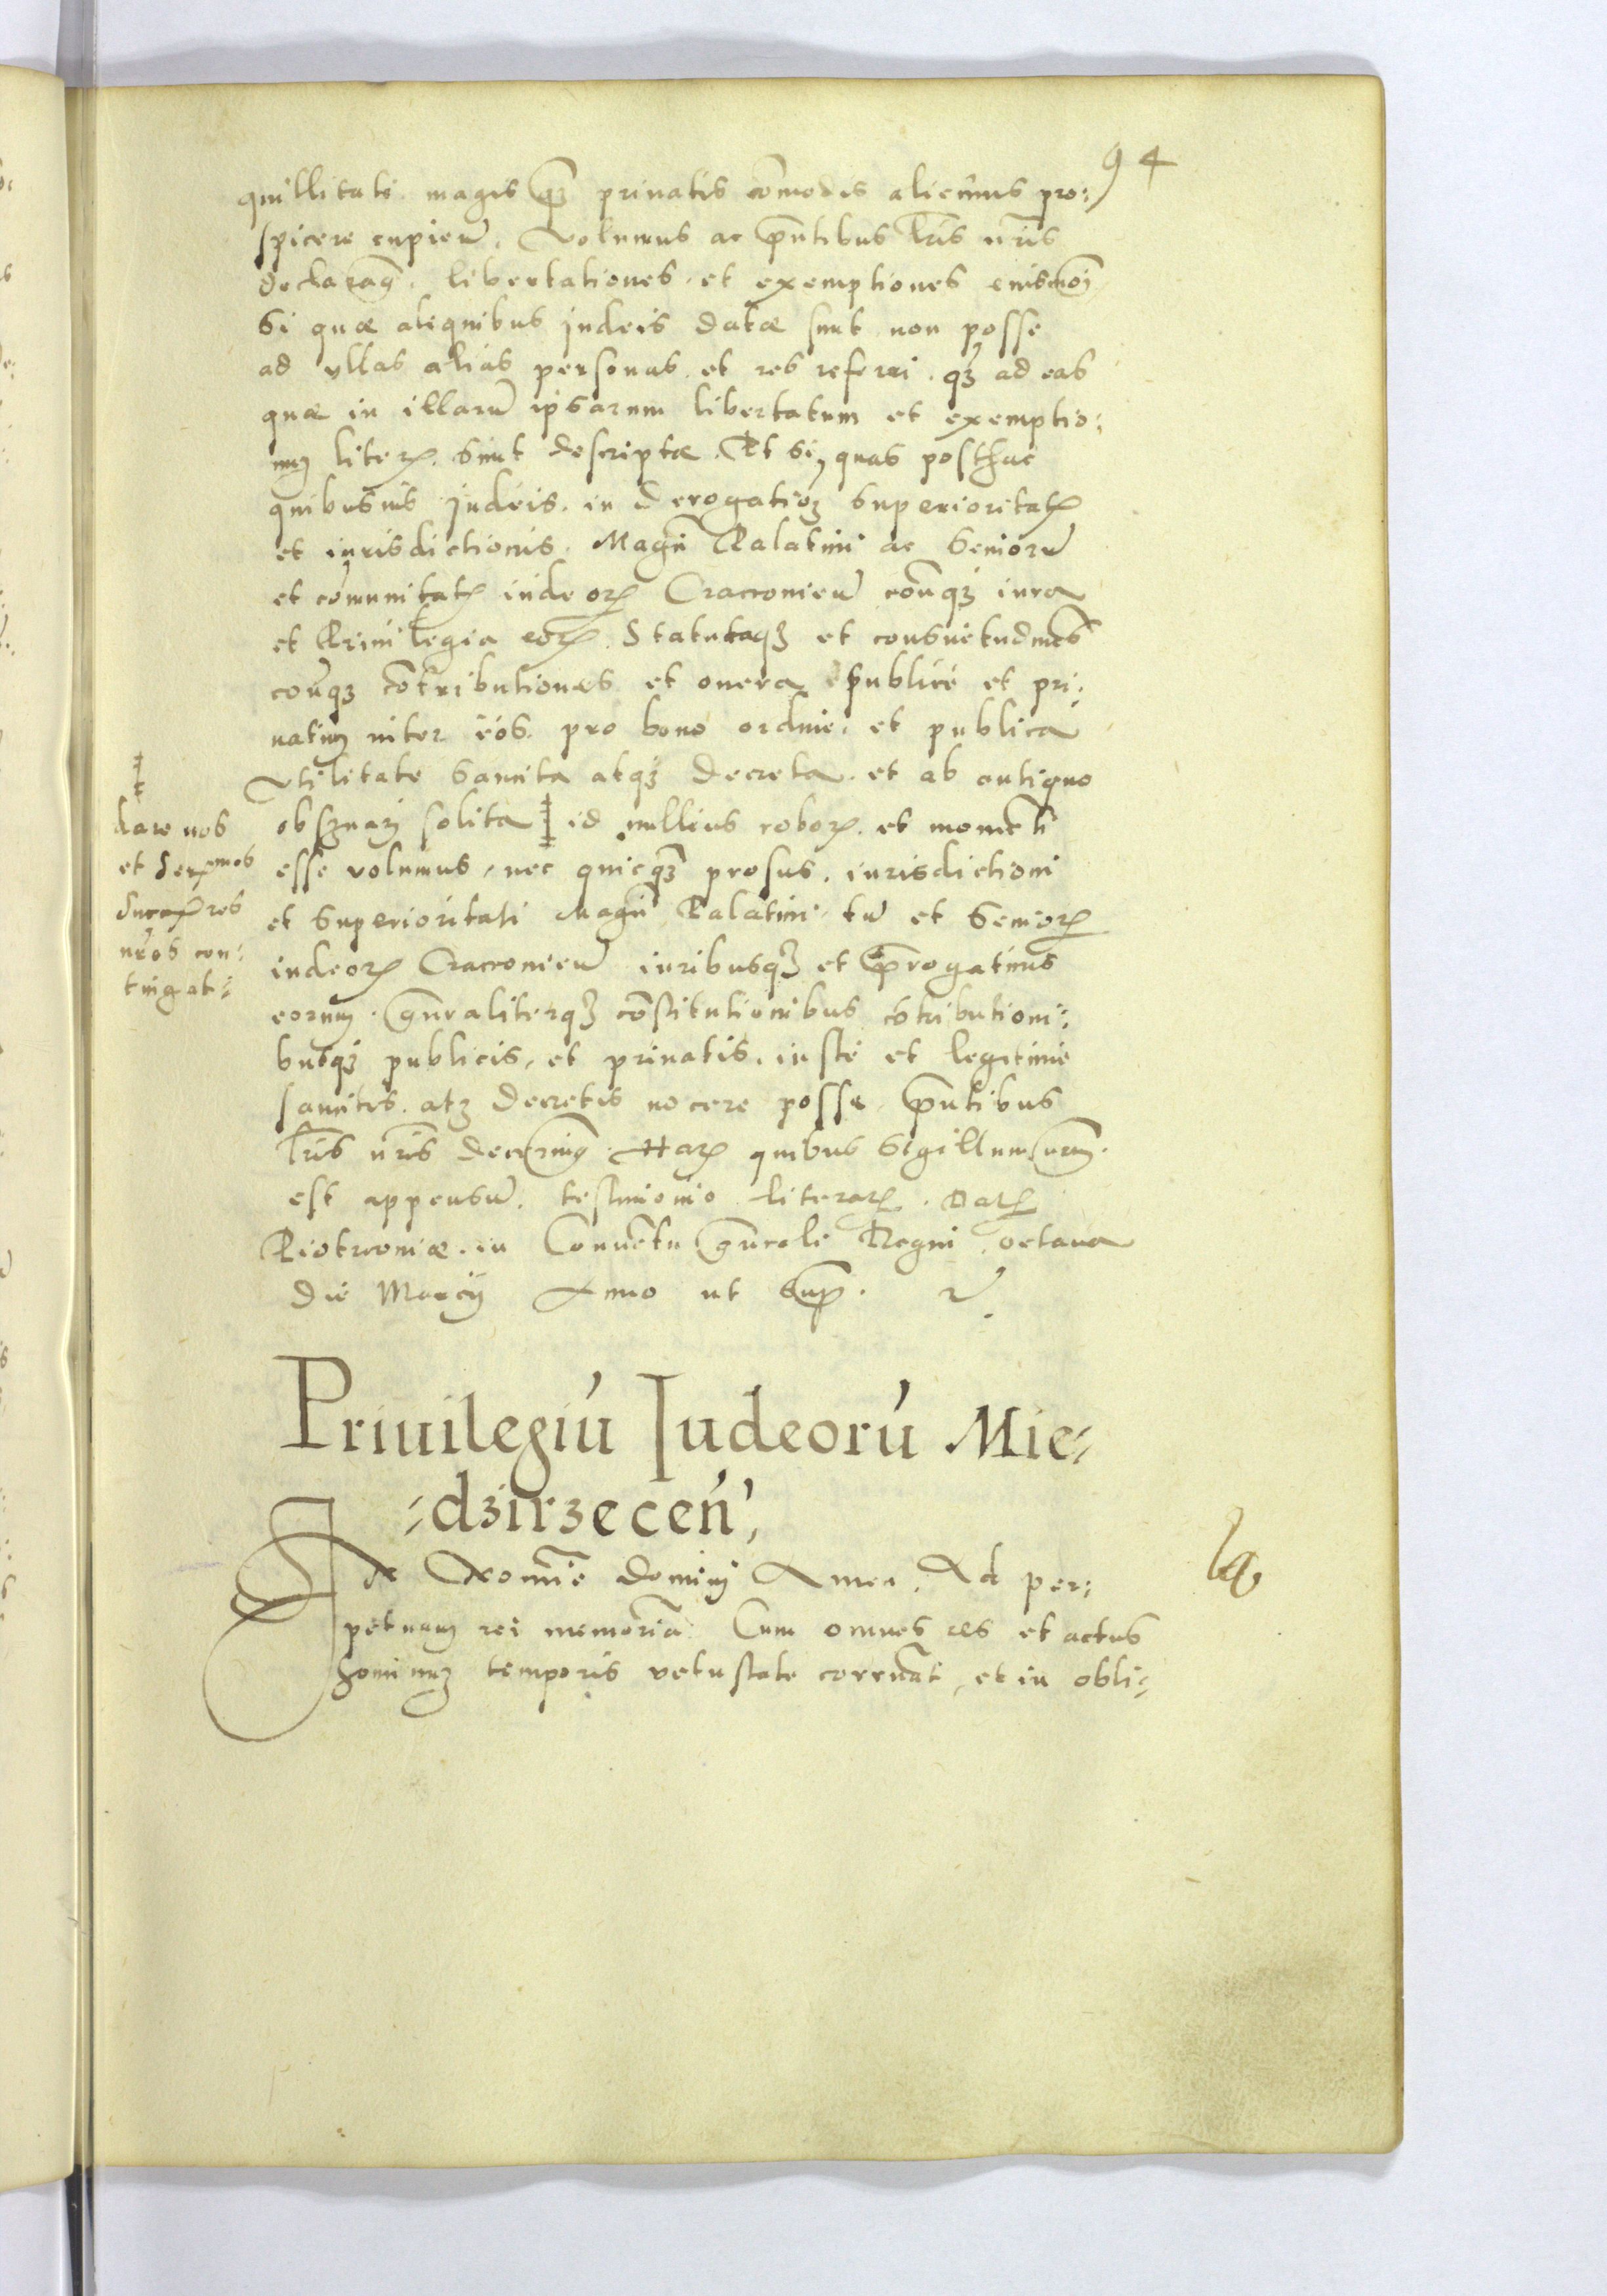 94
quillitati magis q̃ȝ priuatis cõmodis aliquius pro:
spicere cupien̄. Volumus ac p̃ntibus lr̃is nr̃is
declaram9 libertationes et exemptiones euismo͠i
Si quæ aliquibus judeis datæ sunt non posse
ad vllas alias personas et res referri qȝ ad eas
quæ in illarū ipsarum libertatum et exemptio:
nuȝ literꝝ sunt descriptæ. Et si quas posthac
quibusuis judeis in derogationȝ Superioritatꝭ
et iurisdictionis Magn̄ Palatini ac Seniorū
et cōmunitatꝭ iudeorꝝ Cracouien̄ eōrūqȝ iura
et Priuilegia eorꝝ Statutaqȝ et consuetudines
eōrūqȝ cōtributiones et onera publicè et pri:
uatim inter eos pro bono ordine et publica
Vtilitate Sancita atqȝ decreta et ab antiquo
obseruari solita ‡ id nullius roborꝭ et momēti
esse volumus, nec quicq̃ȝ prosus iurisdictioni
et Superioritati Magn̄ Palatini tū et Seniorꝝ
iudeorꝝ Cracouien̄ iuribusqȝ et p̃rogatiuis
eorum gn̄raliterqȝ cōstitutionibus cōtributioni:
busqȝ publicis et priuatis iustè et legitimè
sancitis atqȝ decretis nocere posse p̃ntibus
lr̃is nr̃is decernim9 Harꝝ quibus Sigillum nr̄m
est appensū testimonio literarꝝ. Datꝭ
Piotrcouiæ in Conuētu gn̄rali Regni octaua
die Marcij Anno ut Sup̃.
‡
dare nos
et Ser̄mos
Successores
nr̄os con:
tingat:
Priuilegiú Iudeorú Mie⸗
⸗dȝirȝeceń,
In Nomīe Domini Amen. Ad per:
petuam rei memoriā Cum omnes res et actus
hominuȝ temporis vetustate corruāt et in obli: